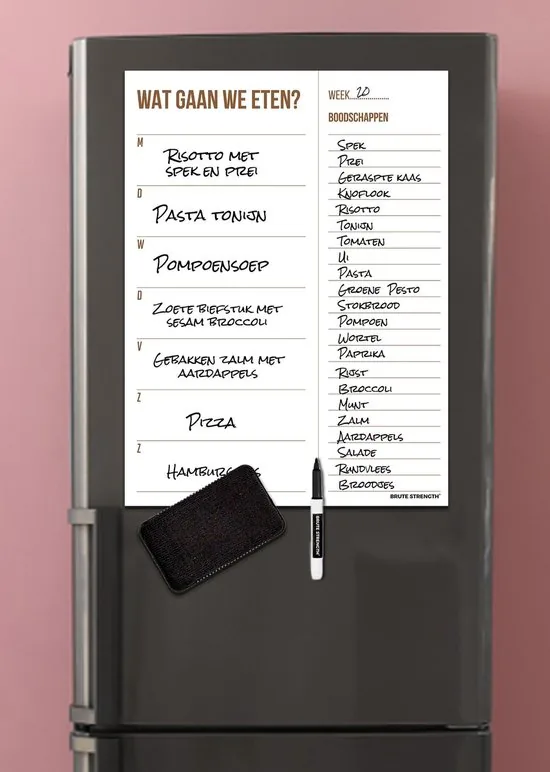 WAT GAAN WE ETEN?
M
RISOTTO MET
SPEK EN PREI
D
PASTA TONIJN
W
POMPOENSOEP
D
ZOETE BIEFSTUK MET
SESAM BROCCOLI
V
GEBAKKEN ZALM MET
AARDAPPELS
Z
PIZZA
Z
WEEK 20
BOODSCHAPPEN
SPEK
PREI
GERASPTE KAAS
KNOFLOOK
RISOTTO
TONIJN
TOMATEN
UI
PASTA
GROENE PESTO
STOKBROOD
POMPOEN
WORTEL
PAPRIKA
RIJST
BROCCOLI
MUNT
ZALM
AARDAPPELS
SALADE
RUNDVLEES
BROODJES
BRUTE STRENGTH
BRUTE STRENGTH